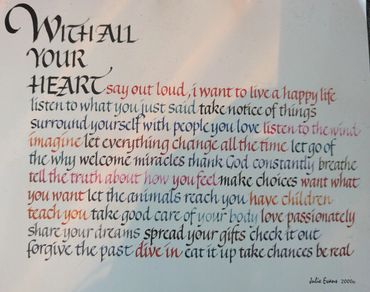 WITH ALL
YOUR
HEART say out loud, i want to live a happy life
listen to what you just said take notice of things
surround yourself with people you love listen to the wind
imagine let everything change all the time let go of
the why welcome miracles thank God constantly breathe
tell the truth about how you feel make choices want what
you want let the animals reach you have children
teach you take good care of your body love passionately
share your dreams spread your gifts check it out
forgive the past dive in eat it up take chances be real
Julie Evans 2000©